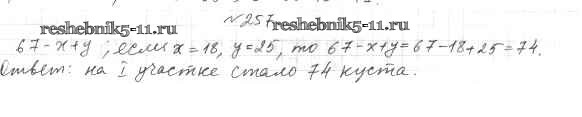 №257
reshebnik5-11.ru reshebnik5-11.ru
67-x+y; если x=18, y=25, то 67-x+y=67-18+25=74.
Ответ: на I участке стало 74 куста.